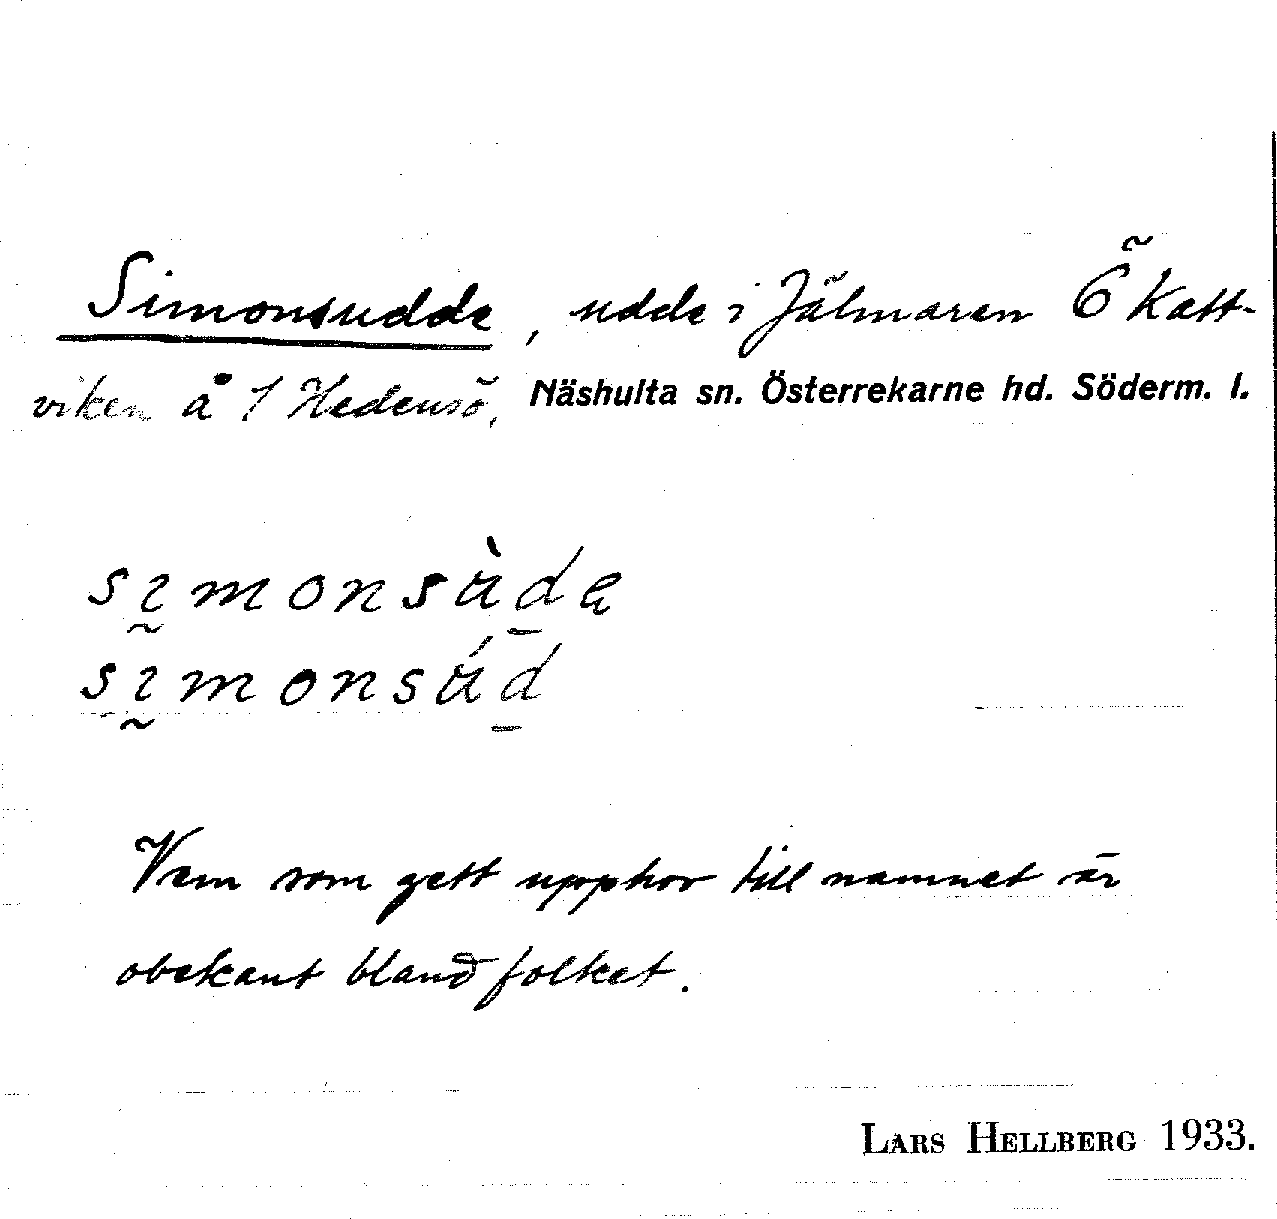 Simonsudde, udde i Jälmaren Ö Katt-
viken å 1 Hedensö, Näshulta sn. Österrekarne hd. Söderm. l.
sɪ̰monsùd̲ę
sɪ̰monsúd̲
Vem som gett upphov till namnet är
obekant bland folket.
LARS HELLBERG 1933.